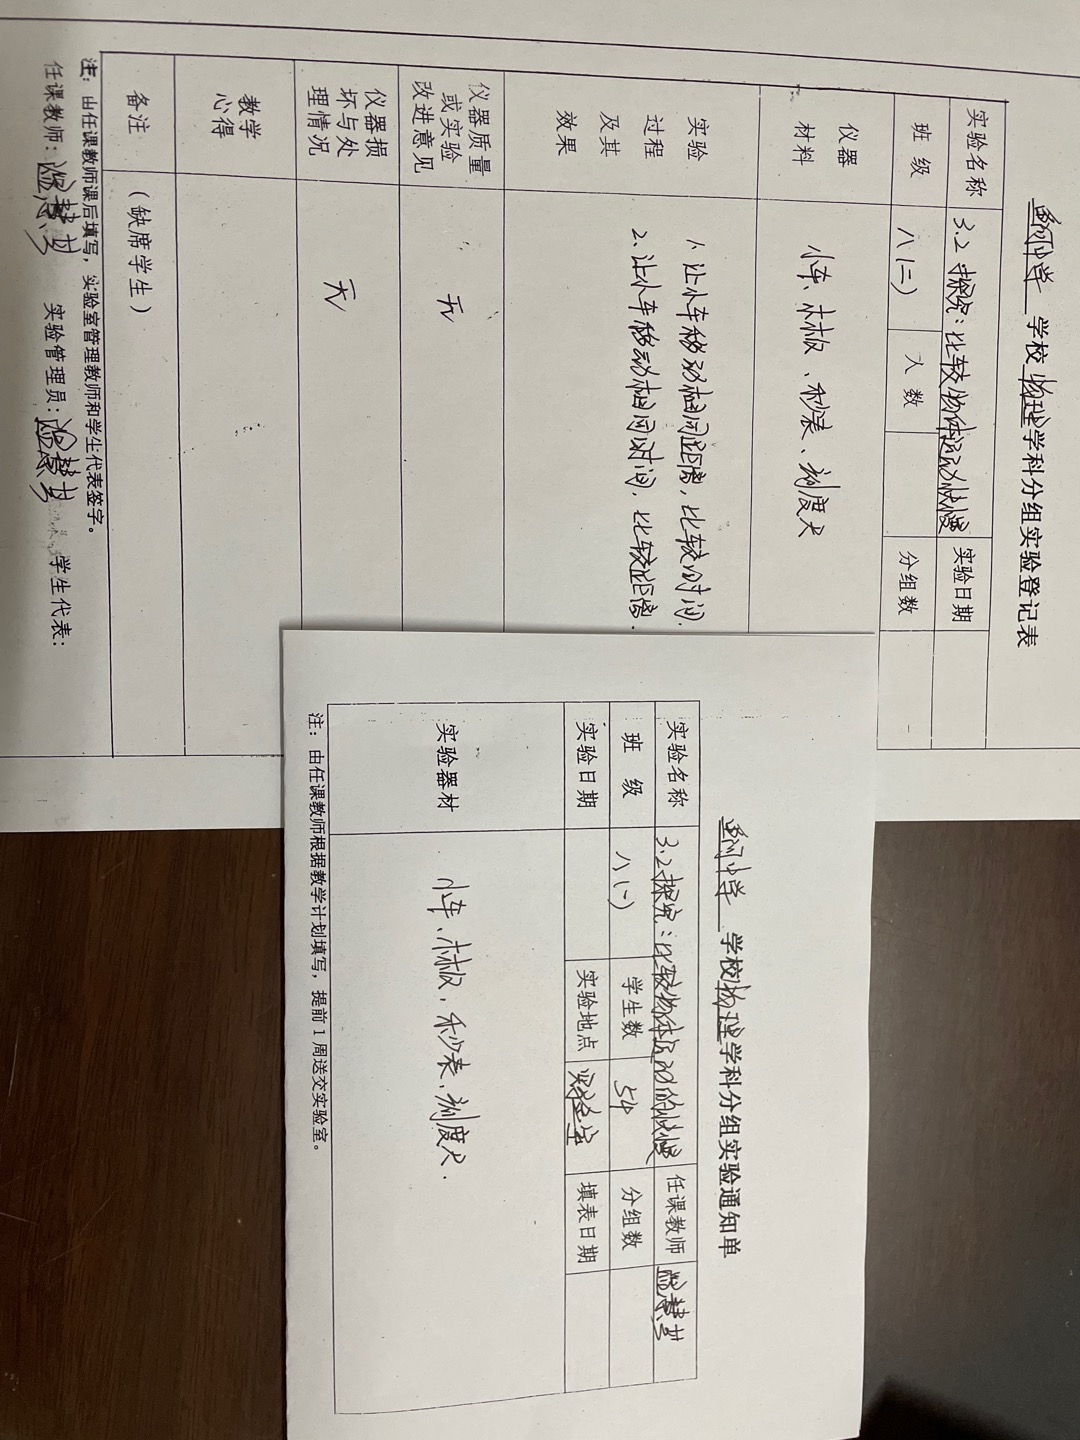 中学 学校物理学科分组实验登记表
实验名称 3.2探究:比较物体运动快慢 实验日期
班 级 八(二) 人数 分组数
仪器材料 小车、木板、秒表、刻度尺
实验过程及其效果 1、让小车移动相同距离,比较时间.
2、让小车移动相同时间,比较距离.
仪器质量或实验改进意见 无
仪器损坏与处理情况 无
教学心得
备注 (缺席学生)
注:由任课教师课后填写,实验室管理教师和学生代表签字。
任课教师: 实验管理员: 学生代表:
中学 学校物理学科分组实验通知单
实验名称 3.2探究:比较物体运动的快慢 任课教师
班 级 八(一) 学生数 54 分组数
实验日期 实验地点 实验室 填表日期
实验器材 小车、木板、秒表、刻度尺.
注:由任课教师根据教学计划填写,提前1周送交实验室。